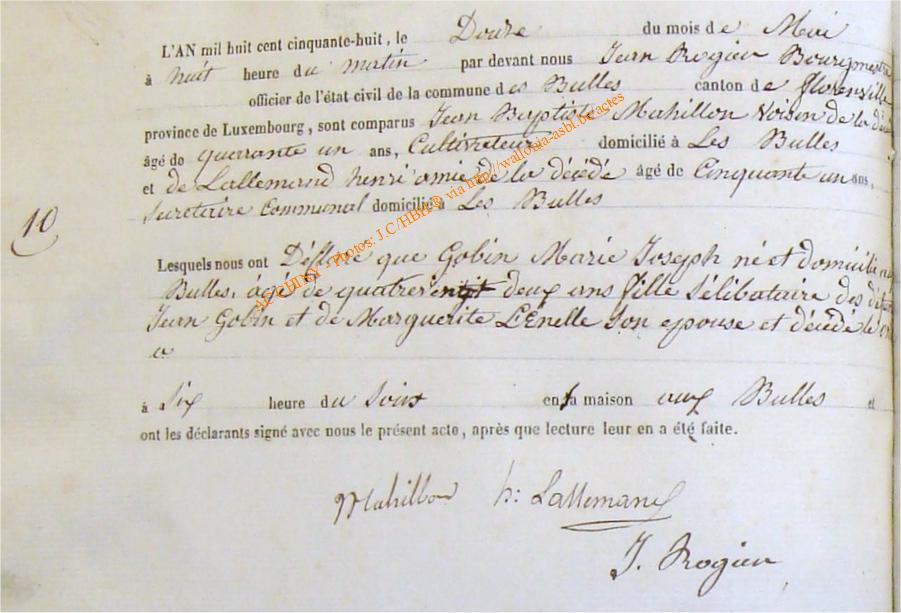 L'AN mil huit cent cinquante-huit, le Douze du mois de Mai
à huit heure du matin par devant nous Jean Rogier Bourgmestre
officier de l'état civil de la commune des Bulles canton de florenville
province de Luxembourg, sont comparus Jean Baptiste Mahillon Voisin de la
âgé de quarante un ans, Cultivateur domicilié à Les Bulles
et de Lallemand henri amie de la décédé âgé de Cinquante un ans,
Secretaire Communal domicilié à Les Bulles
10
Lesquels nous ont Déclare que Gobin Marie Joseph né et domicilié aux
Bulles, agé de quatre vingt deux ans fille Sélibataire des
Jean Gobin et de Marguerite Lenelle Son epouse et décédé le
à Six heure du Soir en sa maison aux Bulles et
ont les déclarants signé avec nous le présent acte, après que lecture leur en a été faite.
Mahillon h: Lallemand
J. Rogier
Photos: J.C/HBH® via http://wallonia-asbl.be/actes